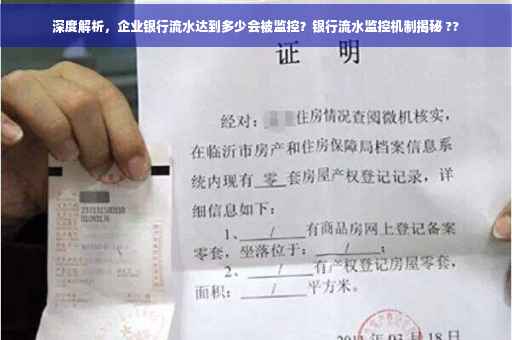 深度解析，企业银行流水达到多少会被监控？银行流水监控机制揭秘 ??
证 明
经对： 住房情况查阅微机核实，
在临沂市房产和住房保障局档案信息系
统内现有 零 套房屋产权登记记录，详
细信息如下：
1、 / 有商品房网上登记备案
零套，坐落位于： / ；
2、 / 有产权登记房屋零套，
面积： / 平方米。
03 月 18 日